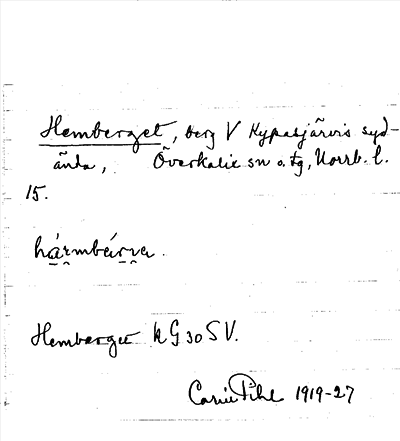 Hemberget, berg V Kypasjärvis syd-
ända, Överkalix sn o. tg, Norrb. l.
15.
Hemberget k G 30 SV.
Carin Pihl 1919-27